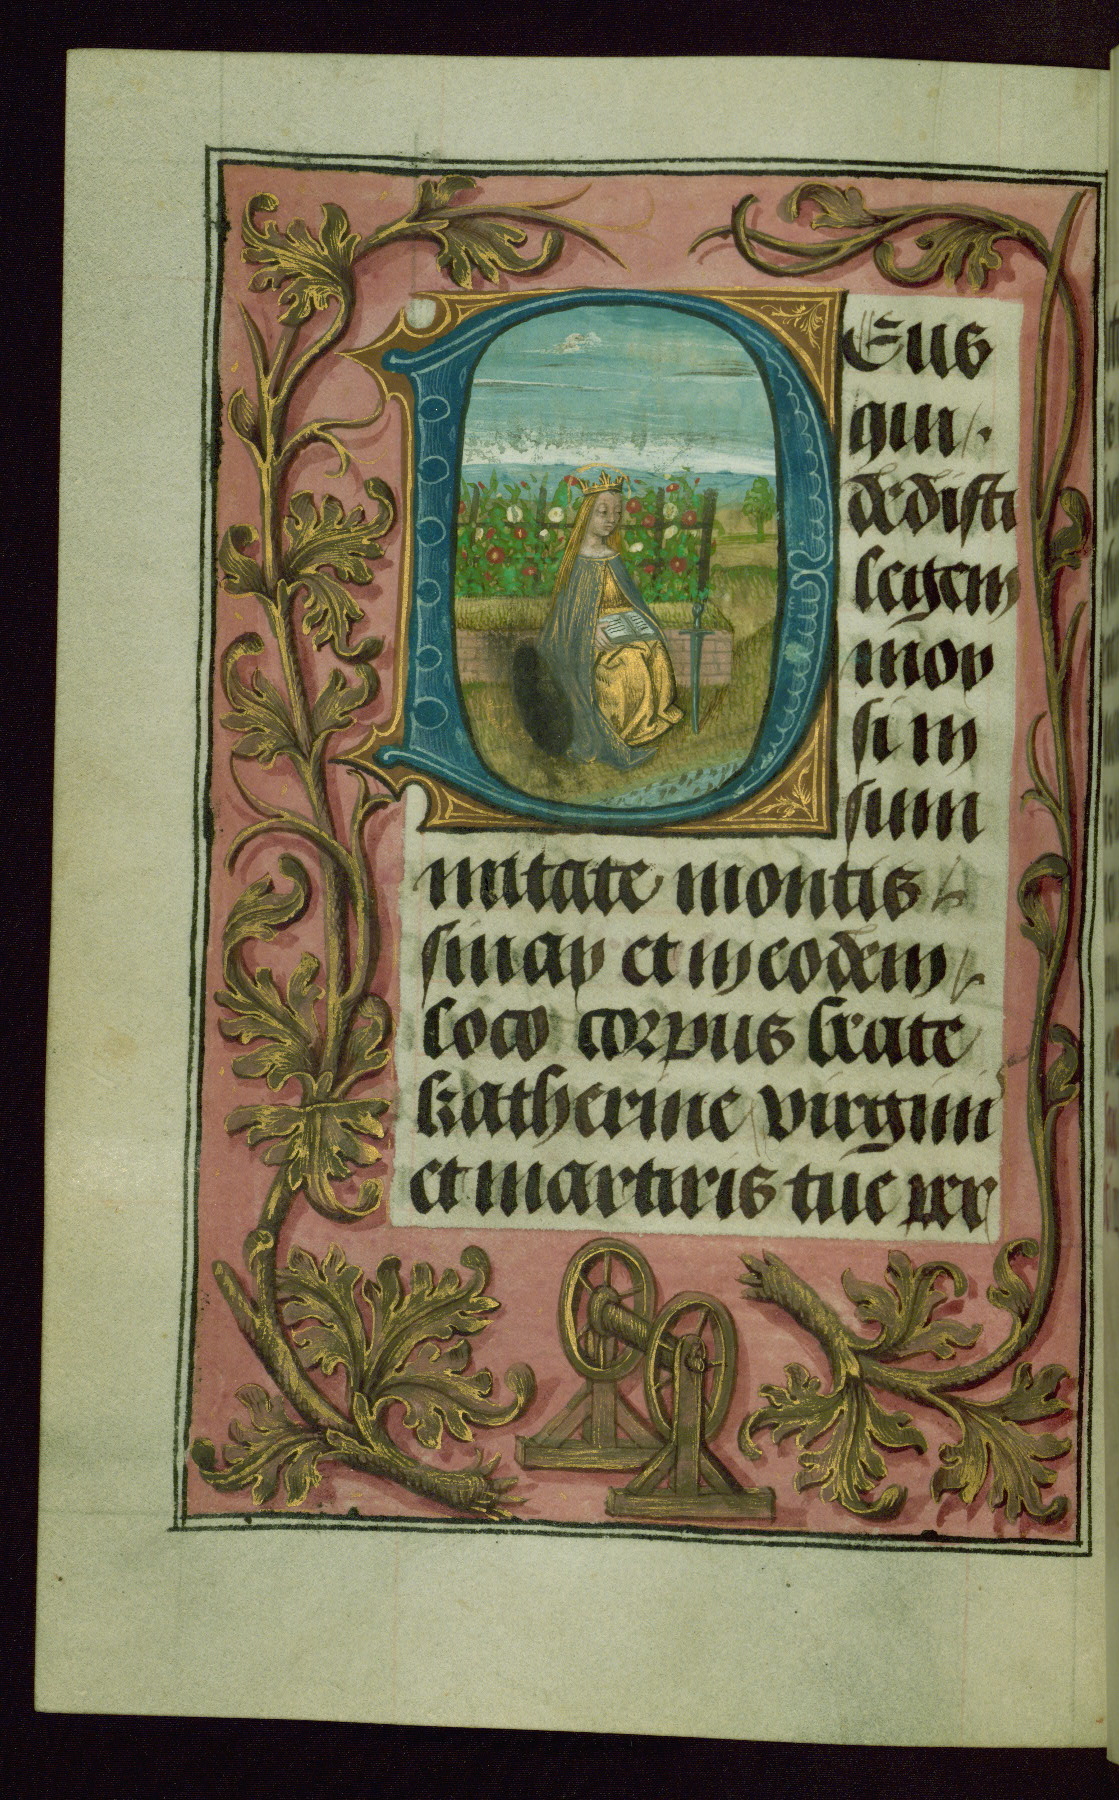 Deus
qui
dedisti
legem
moy
si in
sum
mitate montis
sinay et in eodem
loco corpus beate
katherine virgini
et martiris tue per